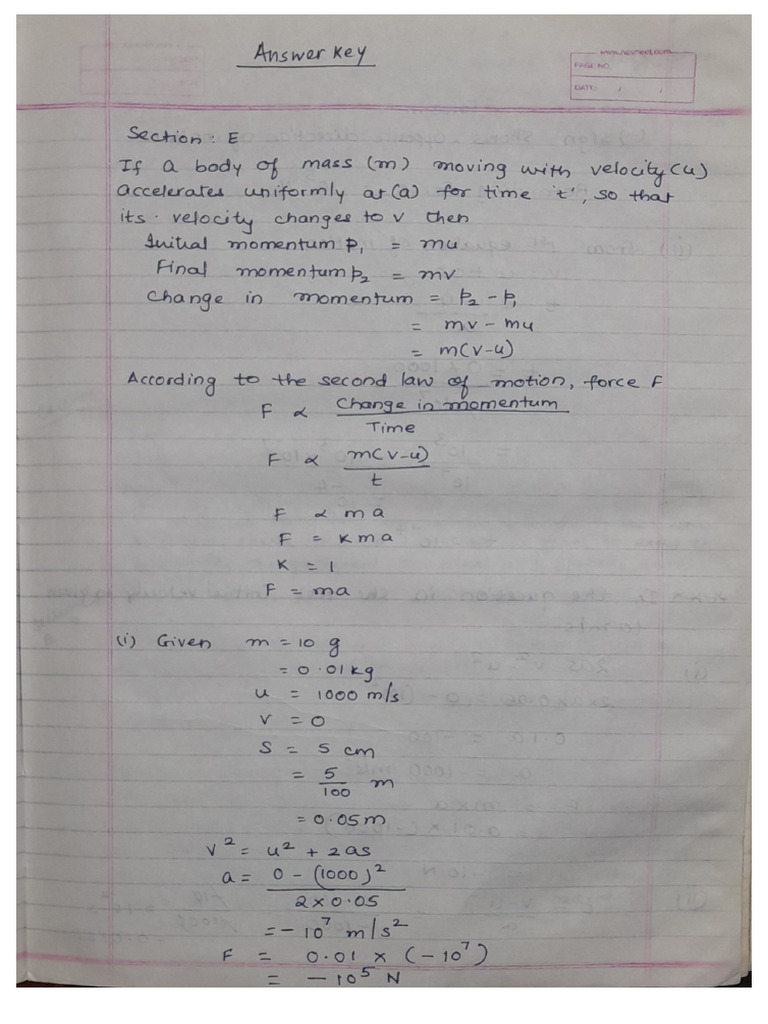 Answer key
PAGE NO.
DATE: / /
Section: E
If a body of mass (m) moving with velocity (u)
accelerates uniformly at (a) for time 't', so that
its velocity changes to v then
Initial momentum p₁ = mu
Final momentum p₂ = mv
Change in momentum = p₂ - p₁
= mv - mu
= m(v-u)
According to the second law of motion, force F
F ∝ Change in momentum / Time
F ∝ m(v-u) / t
F ∝ ma
F = kma
K = 1
F = ma
(i) Given m = 10 g
= 0.01 kg
u = 1000 m/s
v = 0
S = 5 cm
= 5/100 m
= 0.05 m
v² = u² + 2as
a = 0 - (1000)² / 2 x 0.05
= - 10⁷ m/s²
F = 0.01 x (- 10⁷)
= - 10⁵ N